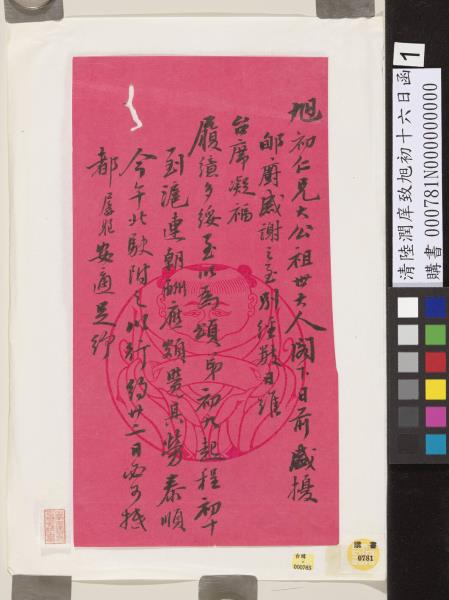 旭初仁兄大公祖世大人閣下日前盛擾
郇廚感謝之至別經數日維
台席凝福
履績多綏至以為頌弟初九起程初十
到滬連朝酬應頗覺其勞泰順
今午北駛附之以行約廿二日必可抵
都屬姪安適足紓
清陸潤庠致旭初十六日函
購書 000781N000000000
1
購書
0781
000785